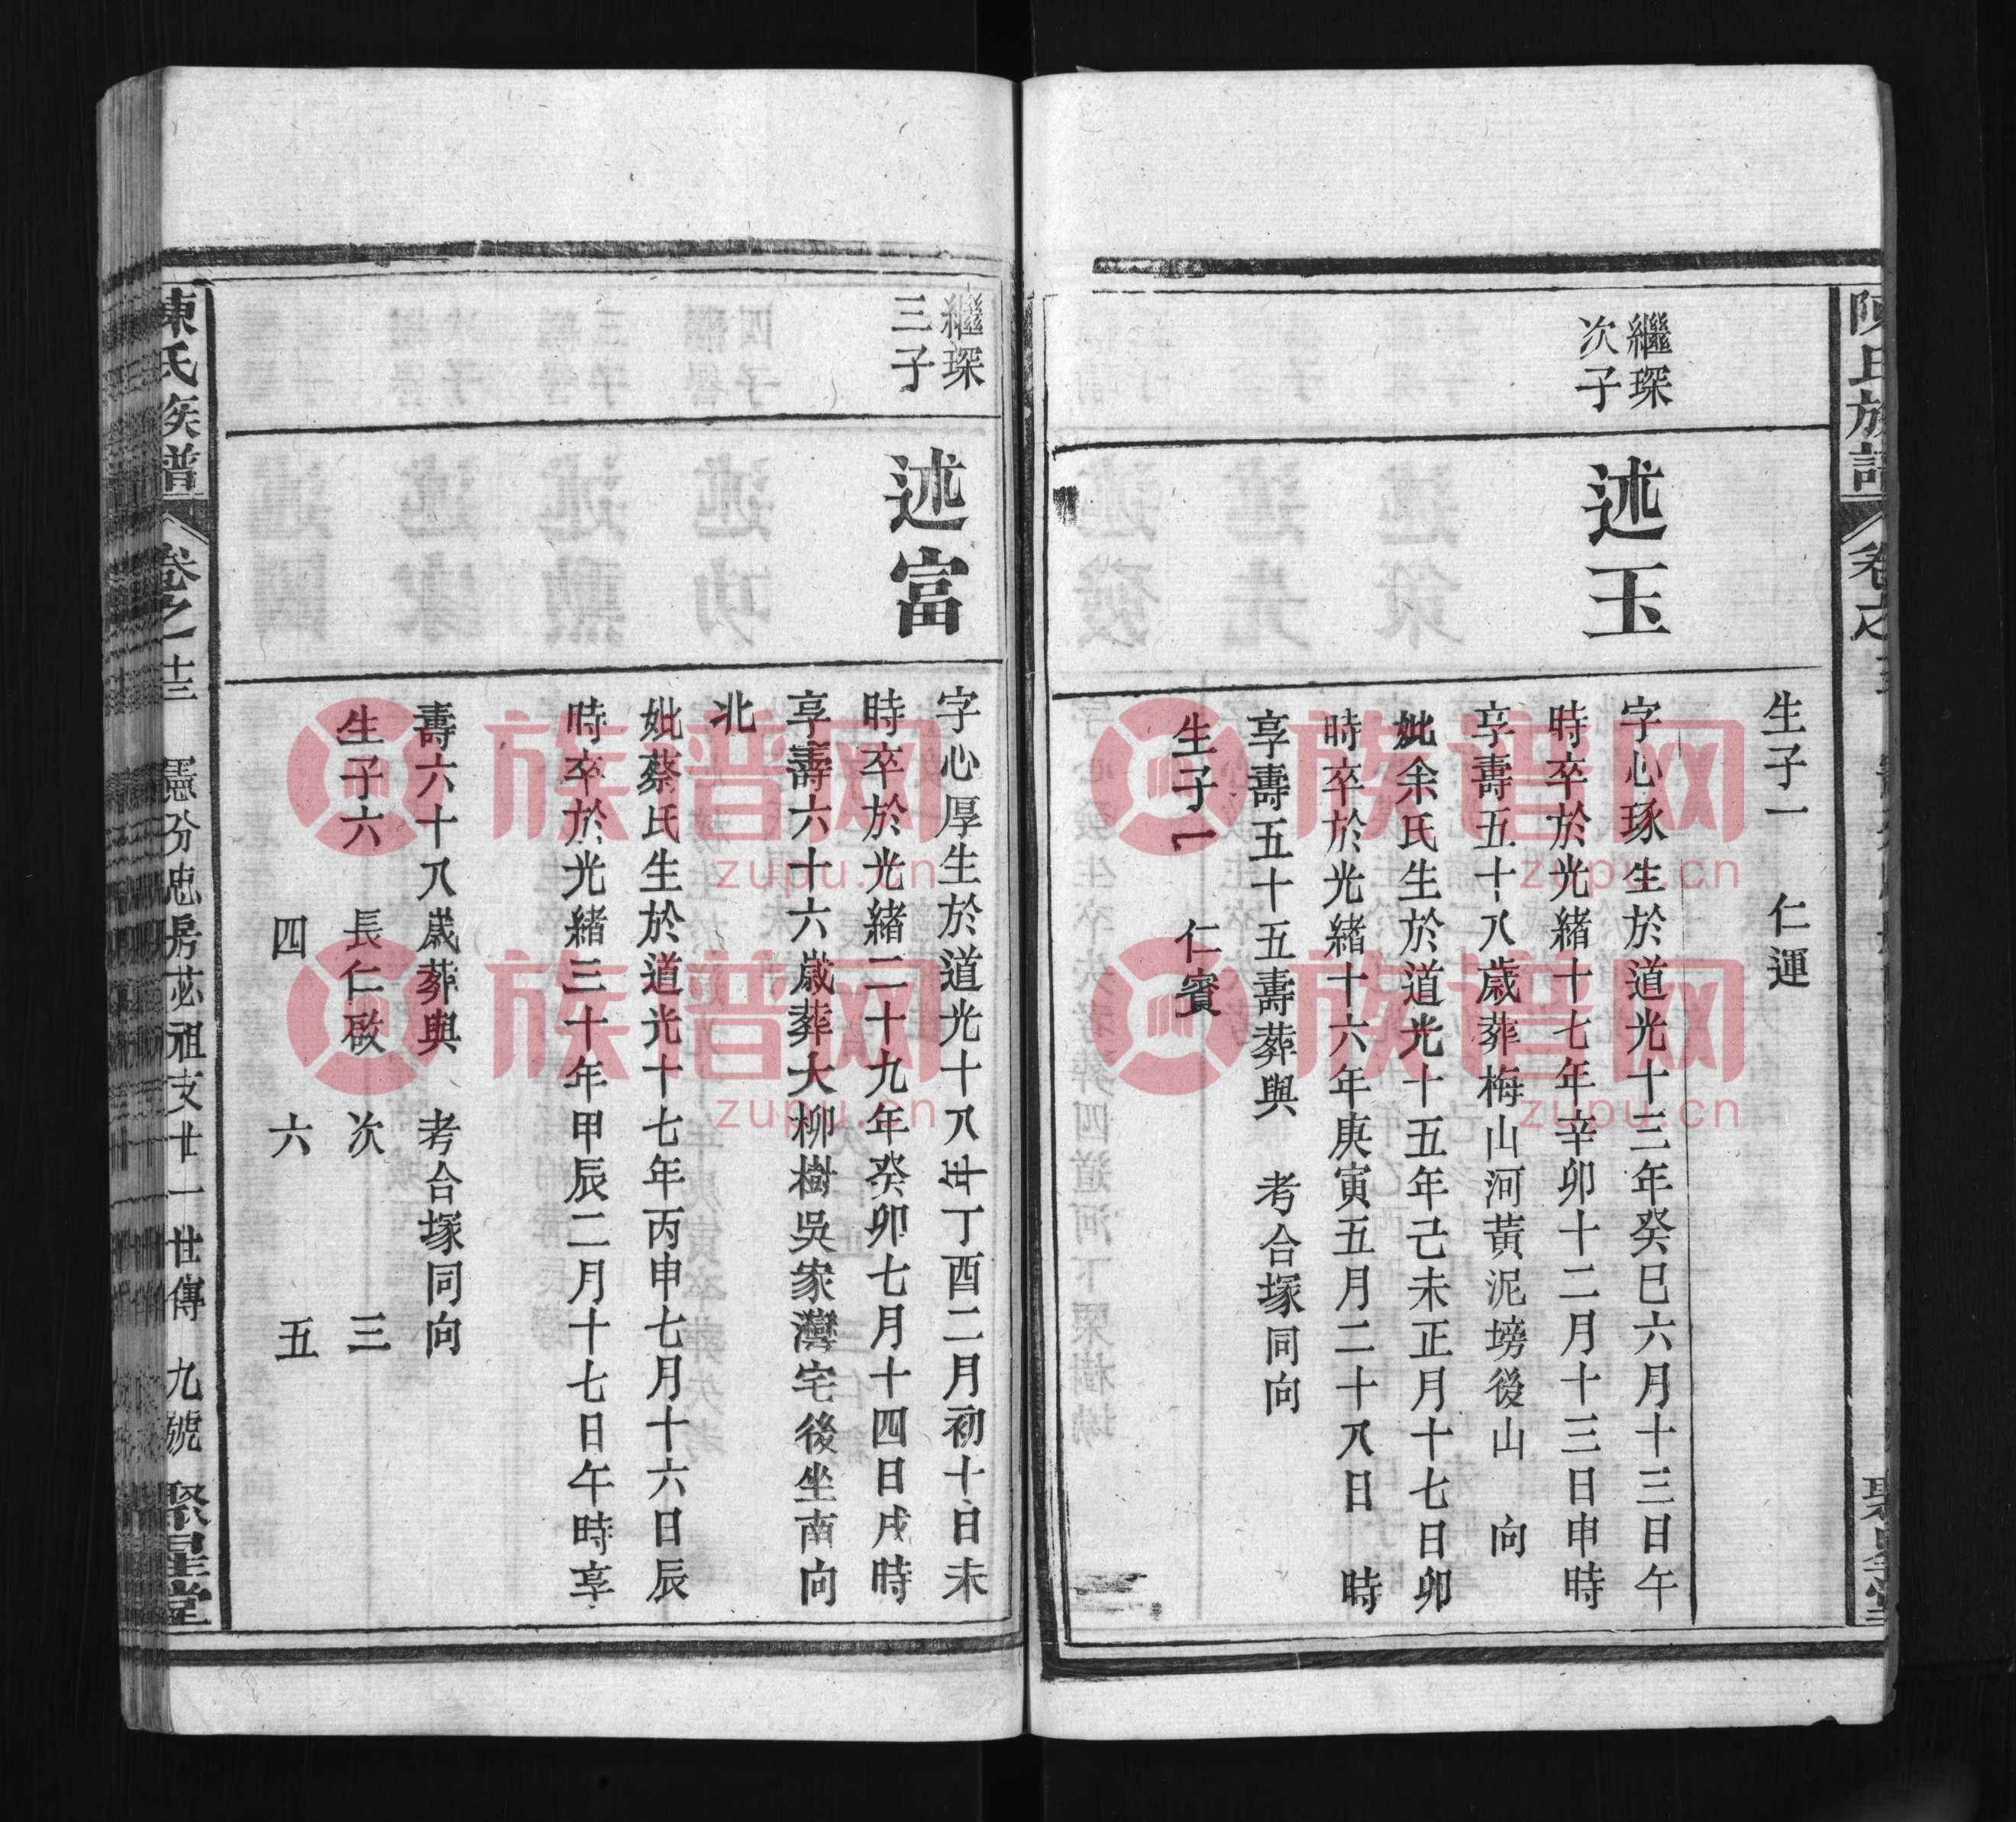 生子一　仁運
繼琛
次子
述玉
字心琢生於道光十三年癸巳六月十三日午
時卒於光緒十七年辛卯十二月十三日申時
享壽五十八歲葬梅山河黃泥塝後山　向
妣余氏生於道光十五年己未正月十七日卯
時卒於光緒十六年庚寅五月二十八日　時
享壽五十五壽葬與　考合塚同向
生子一　仁賓
繼琛
三子
述富
字心厚生於道光十八年丁酉二月初十日未
時卒於光緒二十九年癸卯七月十四日戌時
享壽六十六歲葬大柳樹吳家灣宅後坐南向
北
妣蔡氏生於道光十七年丙申七月十六日辰
時卒於光緒三十年甲辰二月十七日午時享
壽六十八歲葬與　考合塚同向
生子六　長仁啟　次　三
四　六　五
陳氏族譜　卷之十三　憲分忠房苾祖支廿一世傳　九號　聚星堂
族谱网
zupu.cn
族谱网
zupu.cn
族谱网
zupu.cn
族谱网
zupu.cn